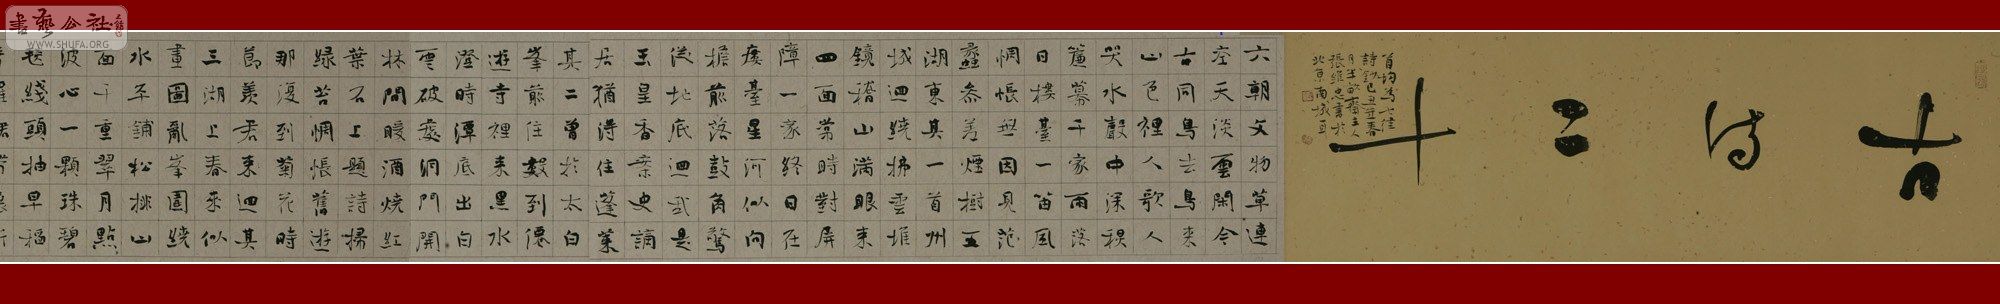 古詩二十
首均為七律
張維忠書於
六朝文物草連
空天淡雲閑今
古同鳥去鳥來
山色裡人歌人
哭水聲中深秋
簾幕千家雨落
日樓臺一笛風
惆悵無因見范
蠡參差煙樹五
湖東其一首州
城迴繞拂雲堆
鏡稽山滿眼來
四面常時對屏
障一家終日在
廔臺星河似向
檐前落鼓角驚
從地底迴我是
玉皇香案吏謫
居猶得住蓬萊
其二曾於太白
峯前住數到僊
遊寺裡來黑水
澄時潭底出白
雲破處洞門開
林間暖酒燒紅
葉石上題詩掃
綠苔惆悵舊遊
那復到菊花時
節羨君來迴其
三湖上春來似
畫圖亂峯圍繞
水平鋪松排山
面千重翠月點
波心一顆珠碧
毯綫頭抽早稻
書藝公社
WWW.SHUFA.ORG